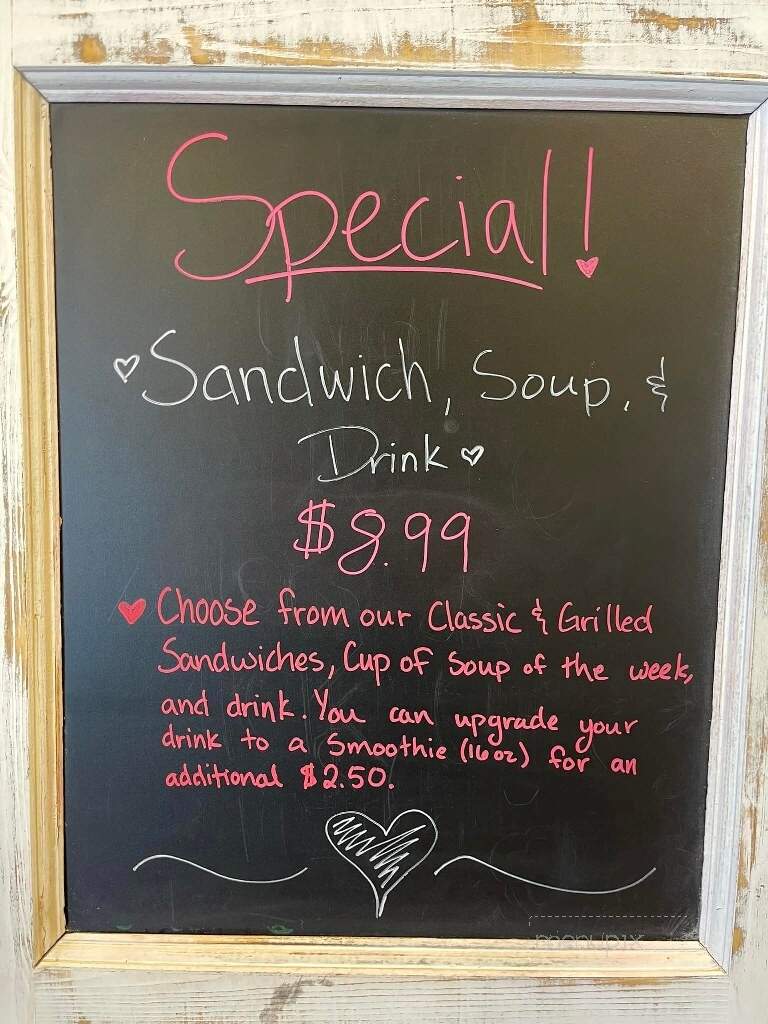 Special!
Sandwich, Soup, &
Drink
$8.99
Choose from our Classic & Grilled
Sandwiches, Cup of Soup of the week,
and drink. You can upgrade your
drink to a Smoothie (16oz) for an
additional $2.50.
menupix